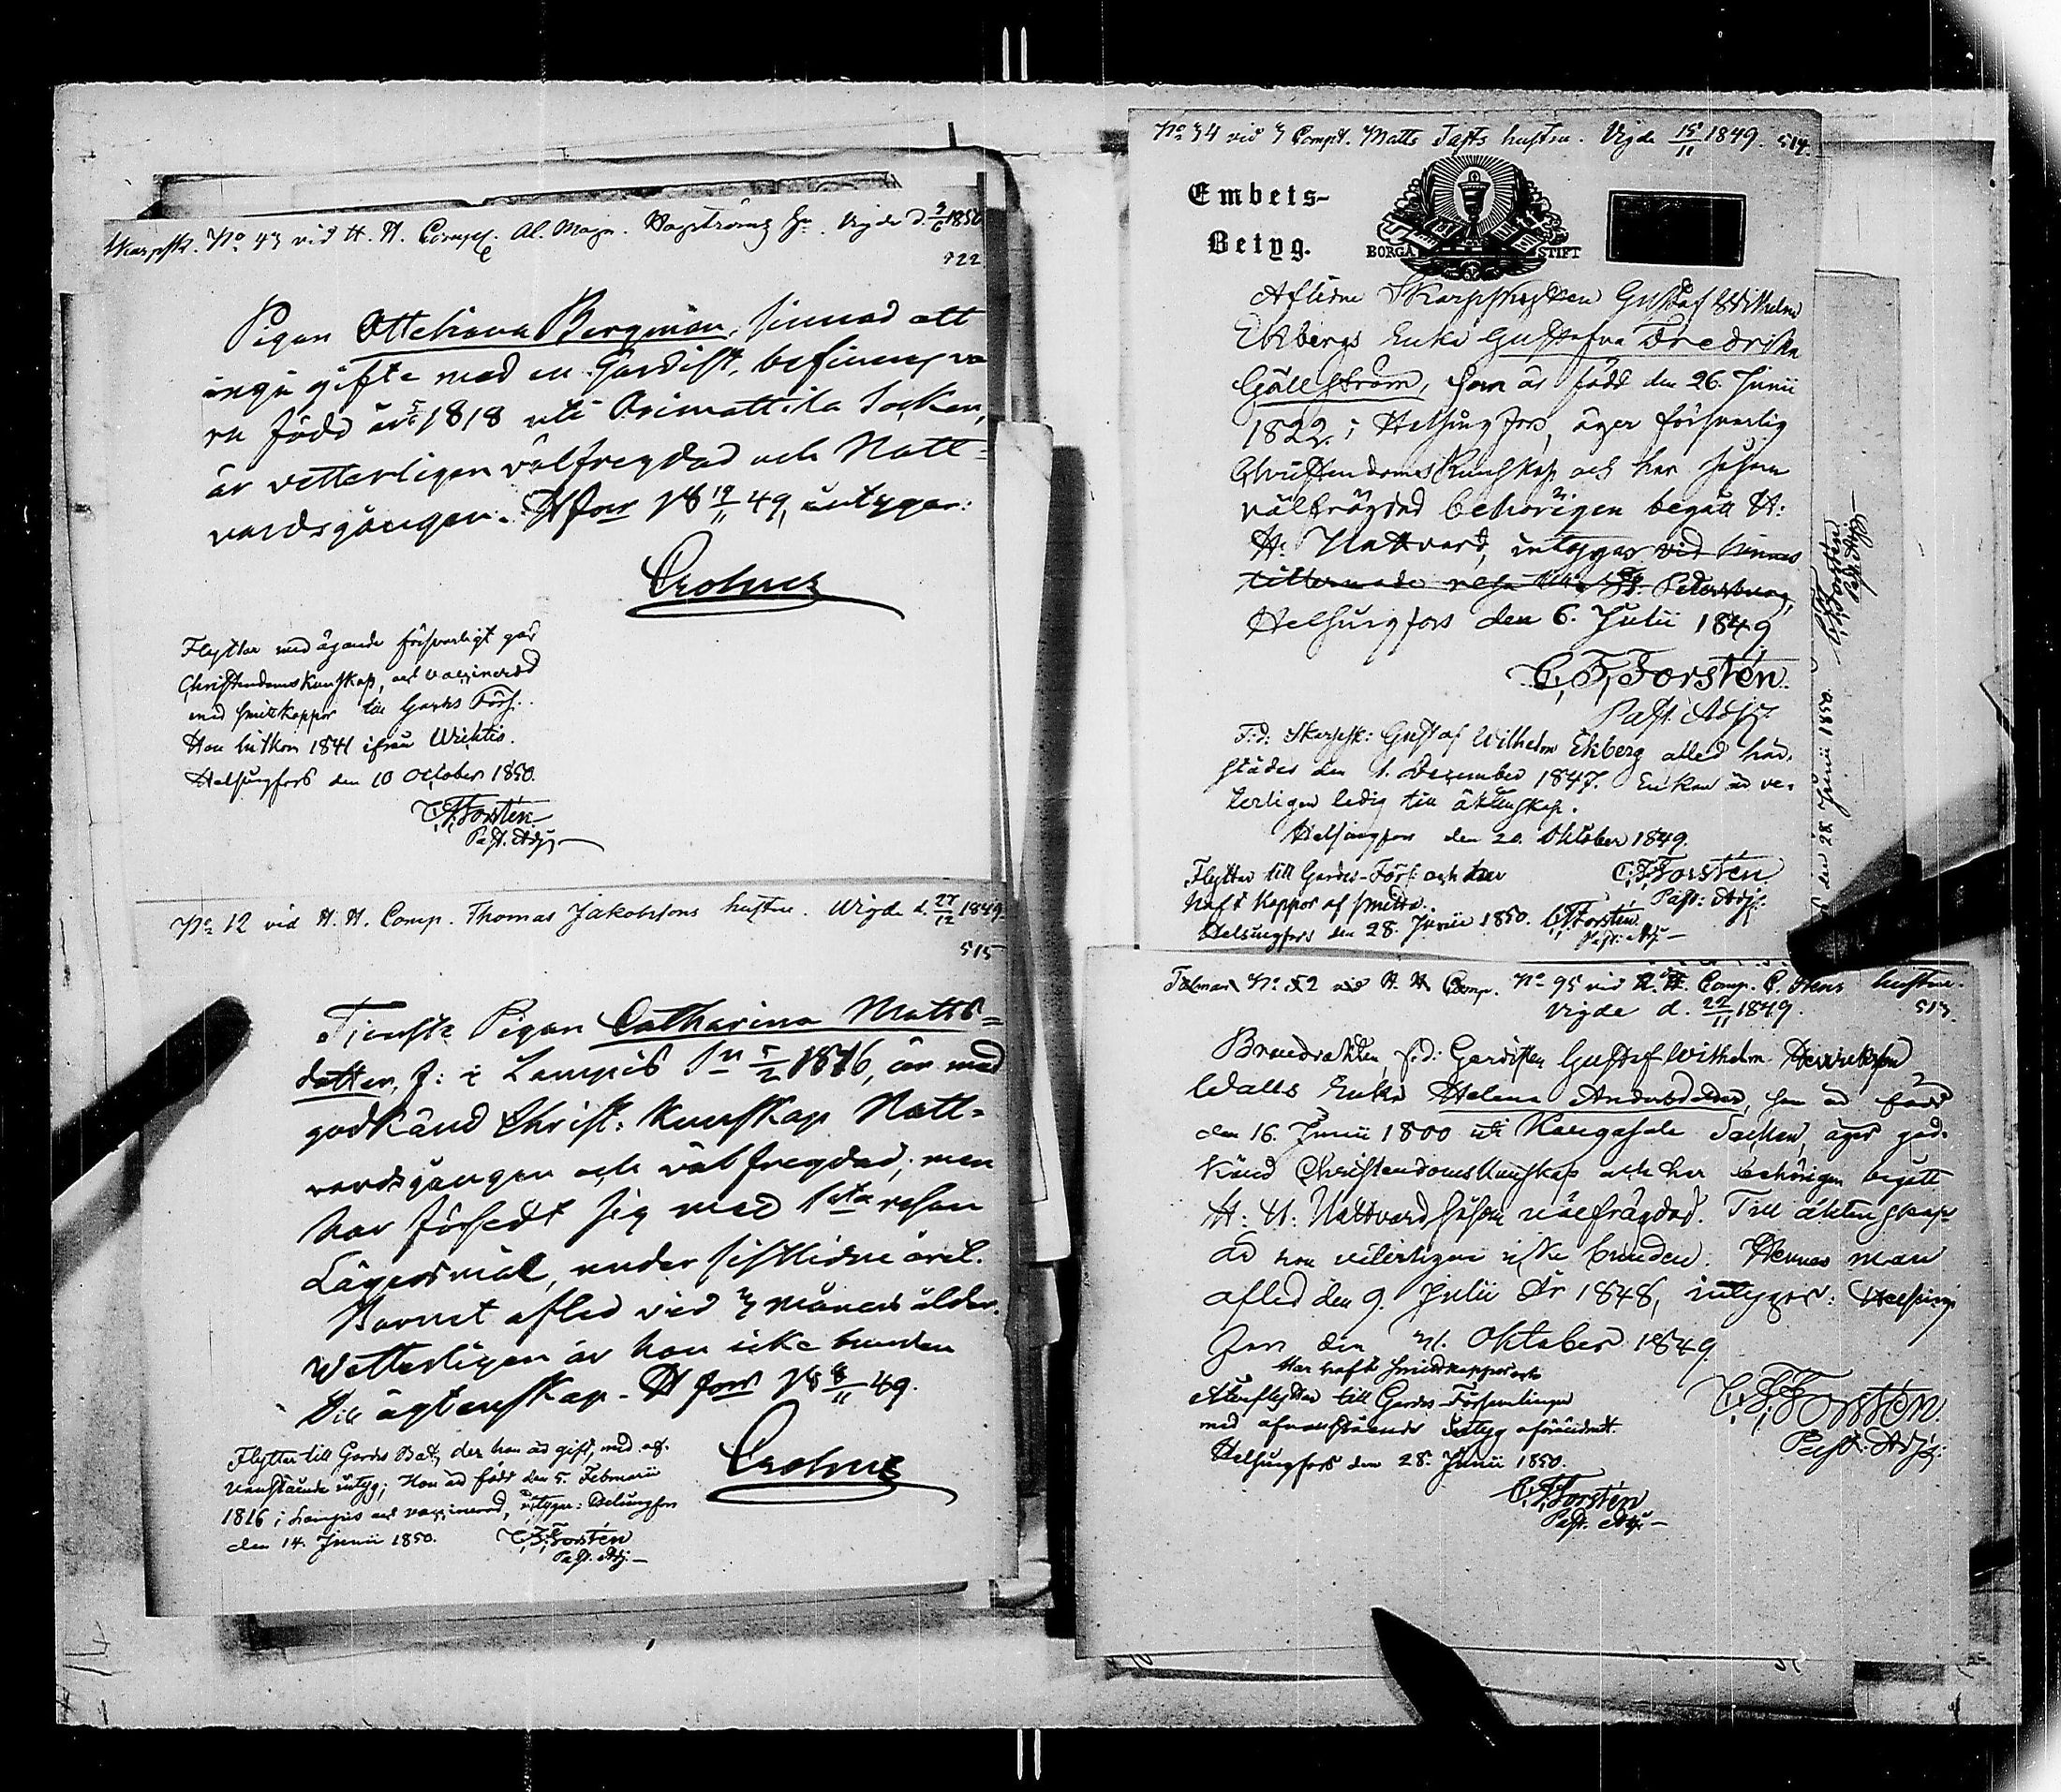 Skarpsk. No 43 vid H. H. Comp. Al. Magn. Hagströms h. Vigde d. 1850
522
Pigan Ottiliana Bergman, sinnad att
ingå gifte med en Gardist, befinnes va
ra född år 1818 uti Orimattila Socken,
är vetterligen välfregdad och Natt=
vardsgången. H:fors 18 19/11 49, intygar:
Crohns
Flyttar med ägande försvarligt god
Christendoms Kunskap, och vaccinerad
med smittkoppor till Gardes Förs.
Hon hitkom 1841 ifrån Wichtis.
Helsingfors den 10 October 1850.
C. F. Forstén.
Past. Adj.
No 12 vid H. H. Comp. Thomas Jakobssons hustru. Wigde d. 27/12 1849.
515
Tjenste Pigan Catharina Matts=
dotter, f: i Lampis 5/2 1816, är med
godkänd Christ: Kunskap Natt=
vardsgången och välfregdad; men
har försedt sig med 1sta resan
Lägersmål, under sistlidne året.
Barnet afled vid 3 månads ålder.
Wetterligen är hon icke bunden
till ägtenskap. H:fors 18 8/11 49.
Crohns
Flyttar till Gardes Bat, der hon är gift, med of-
vanstående intyg; Hon är född den 5. Februarii
1816 i Lampis och vaccinerad, intygar: Helsingfors
den 14. Junii 1850. C. F. Forstén
Past. Adj.
No 34 vid 3 Comp. Matts Tafts hustru. Vigde 15/11 1849. 514.
Embets-
Betyg.
BORGÅ STIFT
Aflidne Skarpskytten Gustaf Wilhelm
Ekbergs Enka Gustafva Fredrika
Gällström, som är född den 26. Junii
1822 i Helsingfors, äger försvarlig
Christendoms Kunskap och har såsom
välfrägdad behörigen begått H:
H: Nattvard, intygas vid hennes
tillernade resa till St. Petersburg,
Helsingfors den 6. Julii 1849
C. F. Forstén.
Past. Adj.
F:d: Skarpsk: Gustaf Wilhelm Ekberg afled här-
städes den 1. December 1847. Enkan är vet-
terligen ledig till äktenskap.
Helsingfors den 20. Oktober 1849.
C. F. Forstén
Past: Adj:
Flyttar till Gardes-Förs: och har
haft koppor af smitta.
Helsingfors den 28. Junii 1850. C. F. Forstén
Past: Adj.
den 28 Junii 1850. C. F. Forstén
Past. Adj.
No 52 vid H. H. Comp. No 95 vid H. H. Comp. C. Stens hustru.
Vigde d. 22/11 1849. 513.
Brandvakten, f. d: Gardisten Gustaf Wilhelm Henriksson
Walls Enka Helena Andersdotter, som är född
den 16. Junii 1800 uti Kangasala Socken, äger god-
känd Christendoms Kunskap och har behörigen begått
H: H: Nattvard såsom välfrägdad. Till äktenskap
är hon veterligen icke bunden. Hennes man
afled den 9. Julii År 1848, intygar: Helsing-
fors den 31. Oktober 1849.
C. F. Forstén.
Past. Adj:
Har haft smittkoppor och
återflyttar till Gardes-Församlingen
med ofvanstående intyg oförändradt.
Helsingfors den 28. Junii 1850.
C. F. Forstén
Past. Adj.